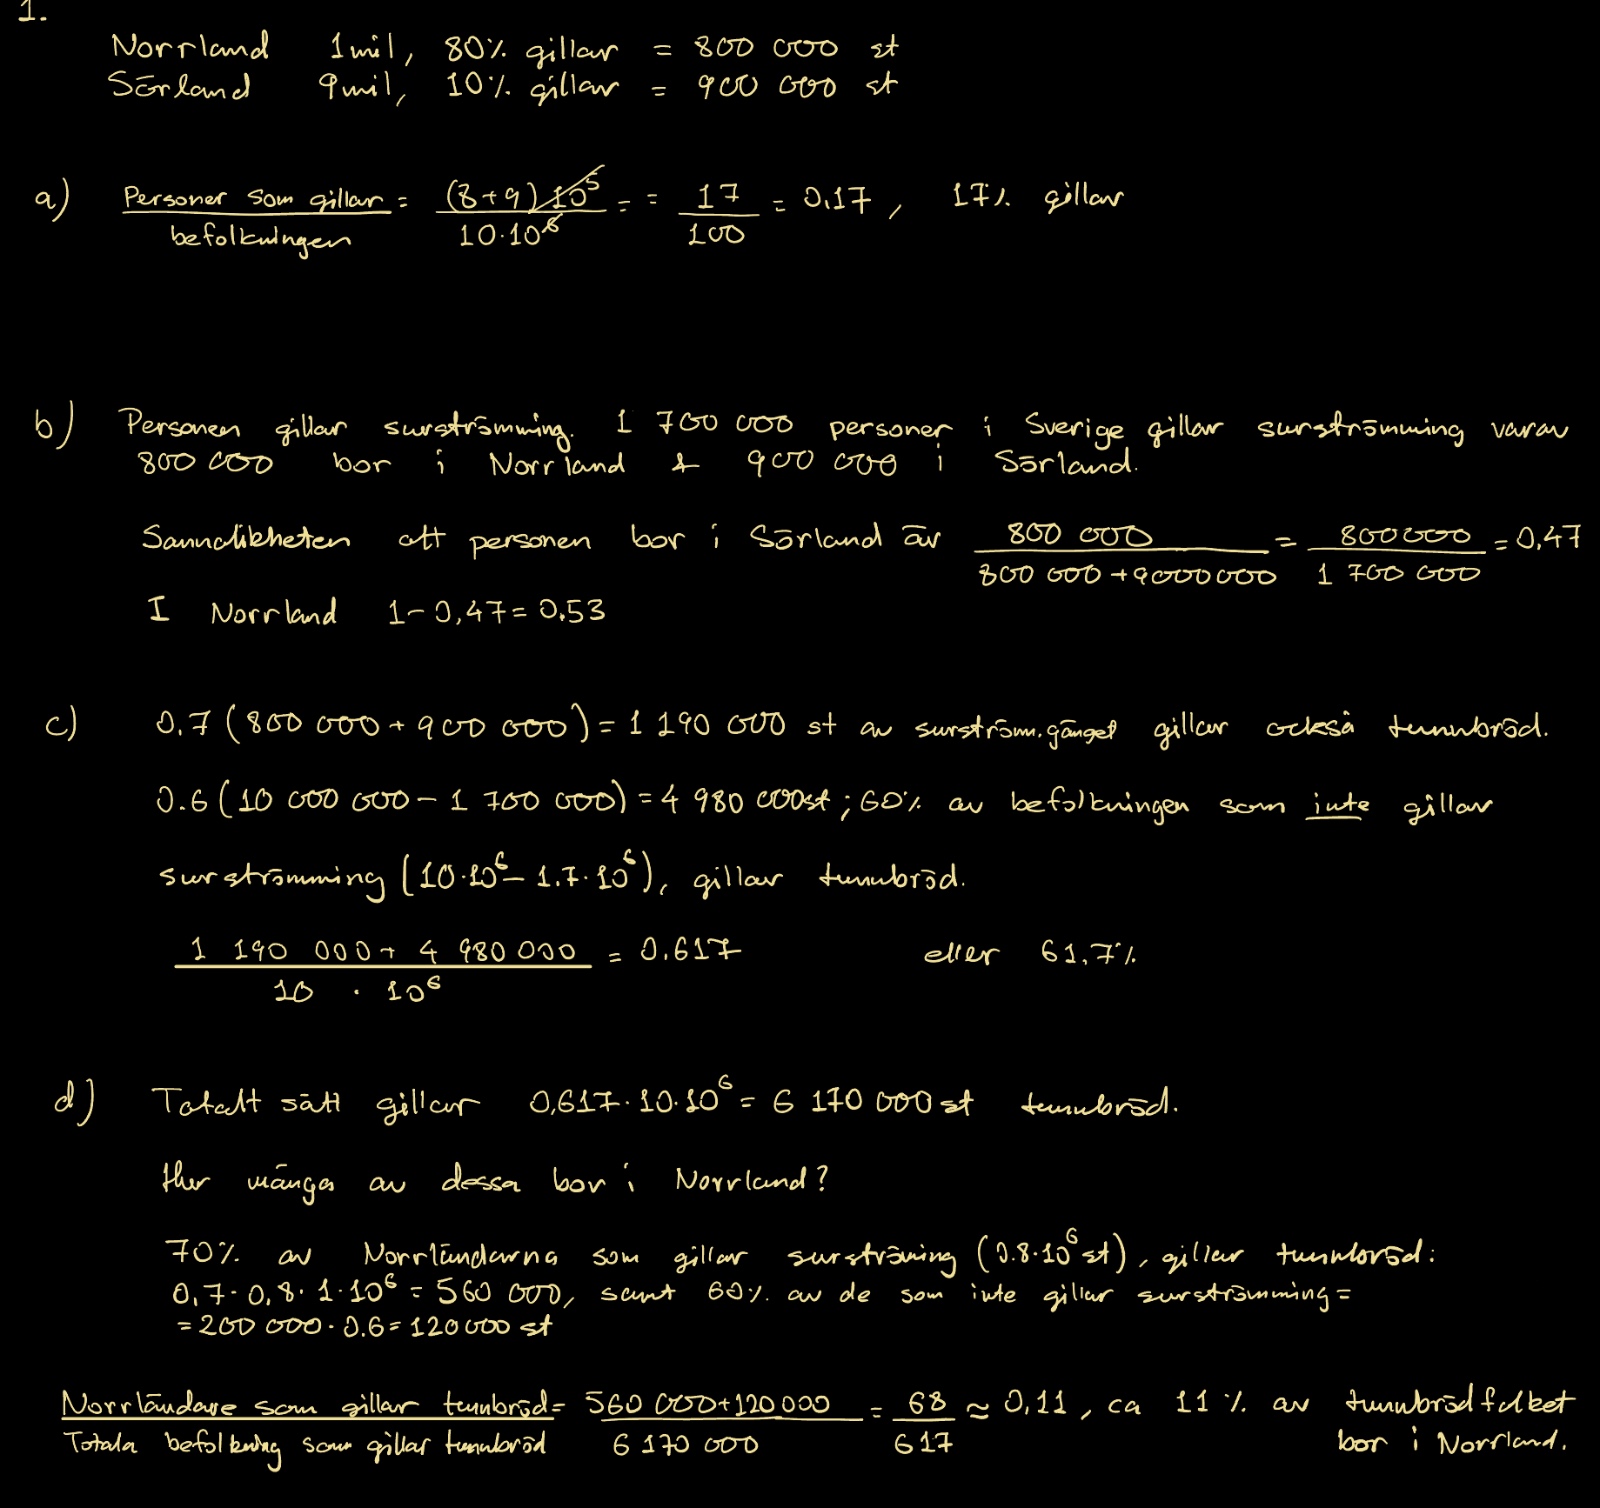 1.
Norrland 1mil, 80% gillar = 800 000 st
Sörland 9mil, 10% gillar = 900 000 st
a) Personer som gillar / befolkningen = (8+9)10^5 / 10·10^6 = = 17/100 = 0.17, 17% gillar
b) Personen gillar surströmming. 1 700 000 personer i Sverige gillar surströmming varav
800 000 bor i Norrland & 900 000 i Sörland.
Sannolikheten att personen bor i Sörland är 800 000 / 800 000 + 9000000 = 800000 / 1 700 000 = 0,47
I Norrland 1-0,47=0.53
c) 0.7 (800 000 + 900 000) = 1 190 000 st av surström.gänget gillar också tunnbröd.
0.6 (10 000 000 - 1 700 000) = 4 980 000st ; 60% av befolkningen som inte gillar
surströmming (10·10^6 - 1.7·10^6), gillar tunnbröd.
1 190 000 + 4 980 000 / 10 · 10^6 = 0.617 eller 61,7%
d) Totalt sätt gillar 0,617·10·10^6 = 6 170 000 st tunnbröd.
Hur många av dessa bor i Norrland?
70% av Norrländarna som gillar surströming (0.8·10^6 st), gillar tunnbröd:
0,7·0,8·1·10^6 = 560 000, samt 60% av de som inte gillar surströmming =
= 200 000 · 0.6 = 120 000 st
Norrländare som gillar tunnbröd / Totala befolkning som gillar tunnbröd = 560 000+120 000 / 6 170 000 = 68/617 ≈ 0,11, ca 11 % av tunnbrödfolket
bor i Norrland.